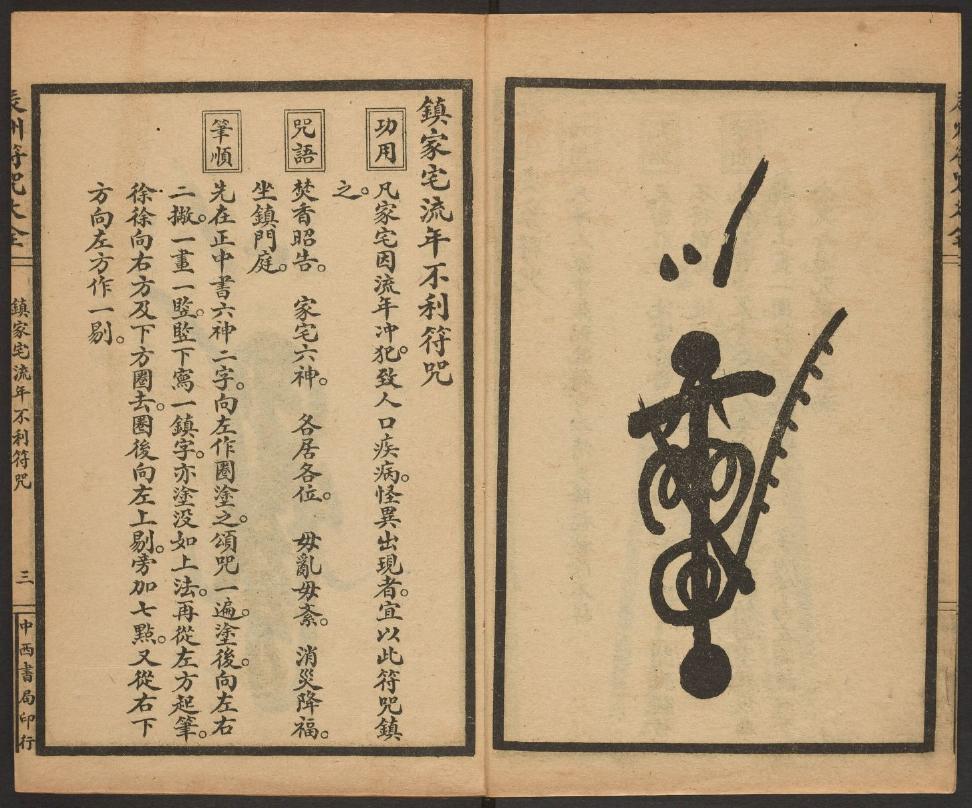 鎮家宅流年不利符咒
功用
凡家宅因流年冲犯。致人口疾病。怪異出現者。宜以此符咒鎮
之。
咒語
焚香昭告。 家宅六神。 各居各位。 毋亂毋紊。 消災降福。
坐鎮門庭。
筆順
先在正中書六神二字。向左作圈塗之。頌咒一遍。塗後。向左右
二撇。一畫一竪。竪下寫一鎮字。亦塗沒如上法。再從左方起筆。
徐徐向右方及下方圈去。圈後向左上剔。旁加七點。又從右下
方向左方作一剔。
辰州符咒大全
鎮家宅流年不利符咒
三
中西書局印行